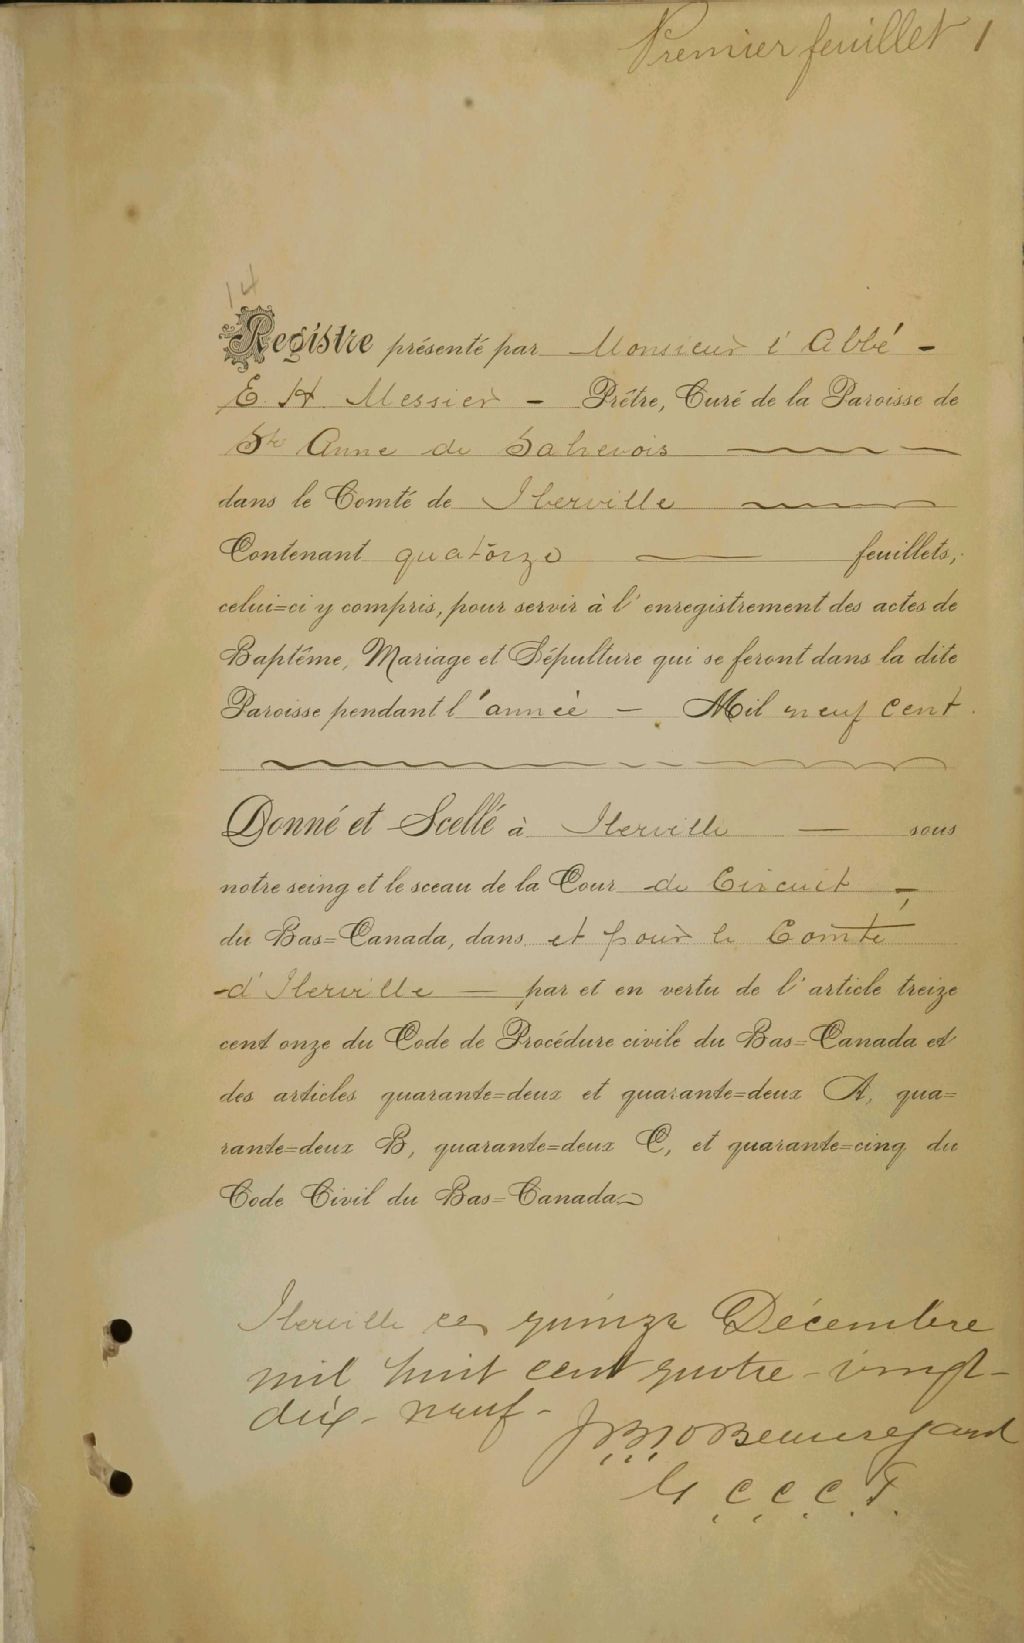 Premier feuillet 1
14
Registre présenté par Monsieur l'Abbé -
E H Messier - Prêtre, Curé de la Paroisse de
Ste Anne de Sabrevois
dans le Comté de Iberville
Contenant quatorze feuillets,
celui=ci y compris, pour servir à l'enregistrement des actes de
Baptême, Mariage et Sépulture qui se feront dans la dite
Paroisse pendant l'année - Mil neuf cent.
Donné et Scellé à Iberville — sous
notre seing et le sceau de la Cour de Circuit -,
du Bas=Canada, dans et pour le Comté
d'Iberville — par et en vertu de l'article treize
cent onze du Code de Procédure civile du Bas=Canada et
des articles quarante=deux et quarante=deux A, qua=
rante=deux B, quarante=deux C, et quarante=cinq du
Code Civil du Bas=Canada.
Iberville ce quinze Décembre
mil huit cent quatre-vingt-
dix-neuf-
Beauregard
G C C C I.